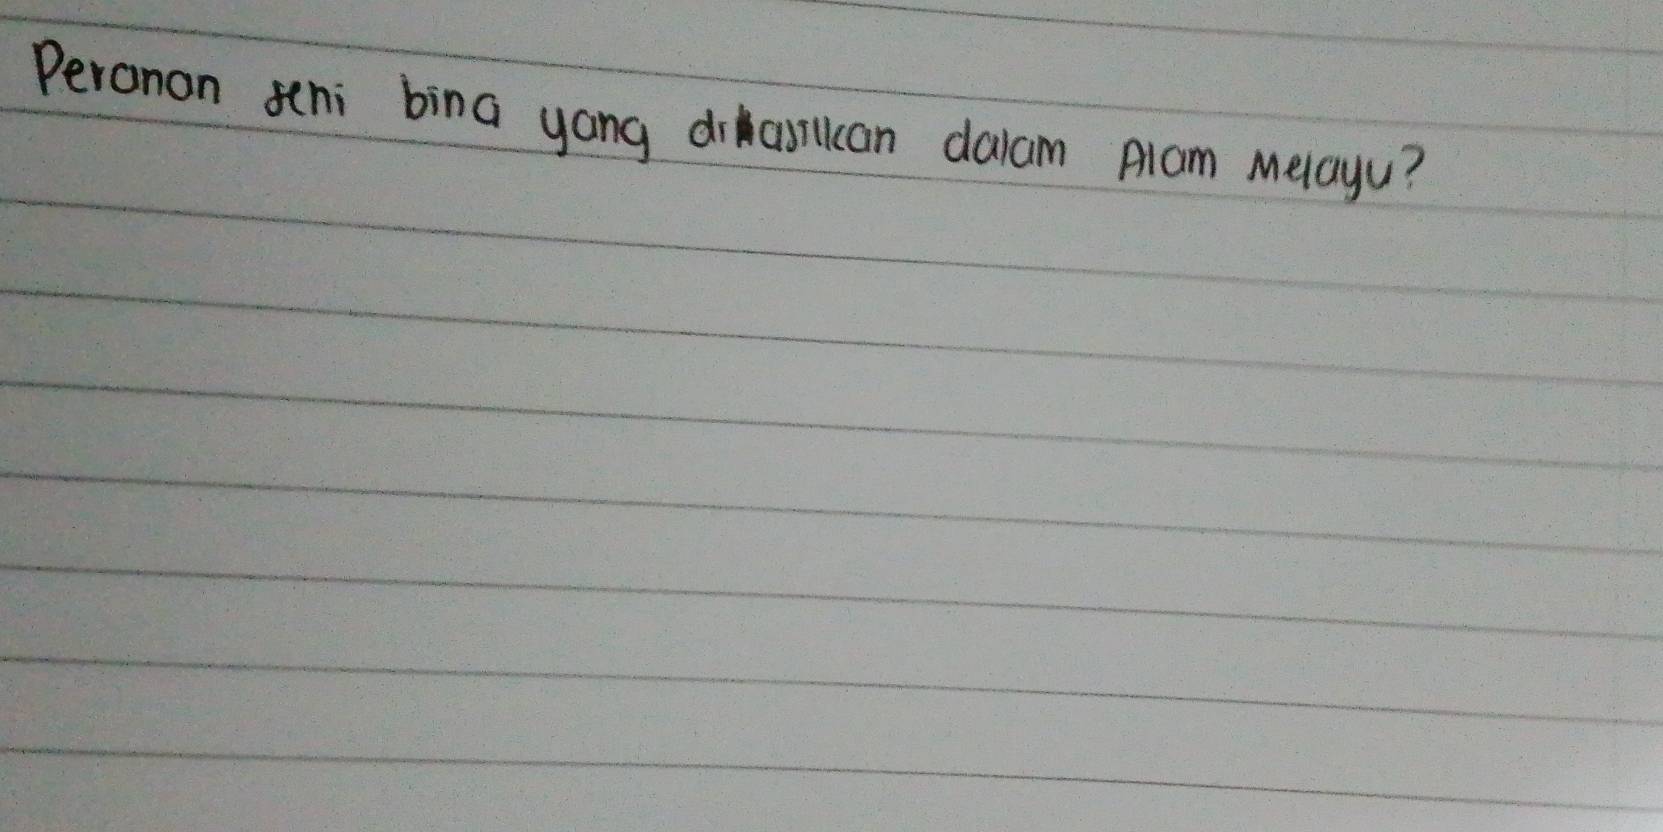 Peranan seni bina yang dihasilkan dalam Alam Melayu?